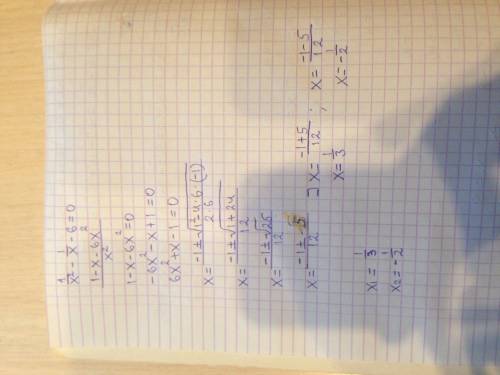 1/x² - 1/x - 6 = 0
(1-x-6x²)/x²
1-x-6x²=0
-6x²-x+1=0
6x²+x-1=0
x = (-1±√(1²-4·6·(-1)))/(2·6)
x = (-1±√(1+24))/12
x = (-1±√25)/12
x = (-1±5)/12
x = (-1+5)/12 ; x = (-1-5)/12
x = 1/3 x = -1/2
x₁ = 1/3
x₂ = -1/2